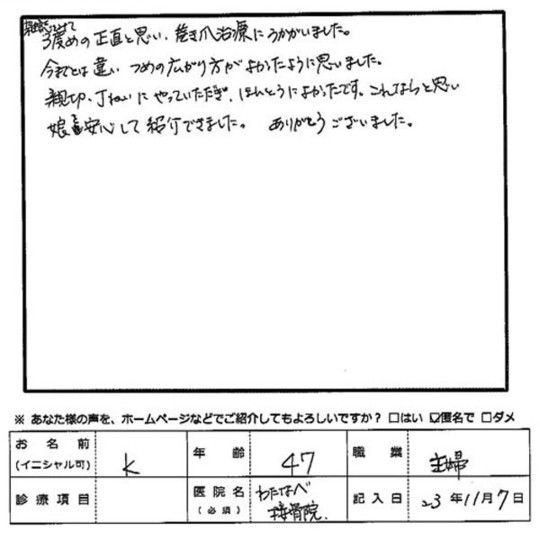 3度めの正直と思い、巻き爪治療にうかがいました。
今までとは違い つめの広がり方がよかったように思いました。
親切、丁ねいにやっていただき、ほんとうによかったです。これならと思い
娘も安心して紹介できました。 ありがとうございました。
※ あなた様の声を、ホームページなどでご紹介してもよろしいですか？ □はい ☑匿名で □ダメ
お名前 (イニシャル可) K 年齢 47 職業 主婦
診療項目 医院名 (必須) わたなべ接骨院. 記入日 23年11月7日